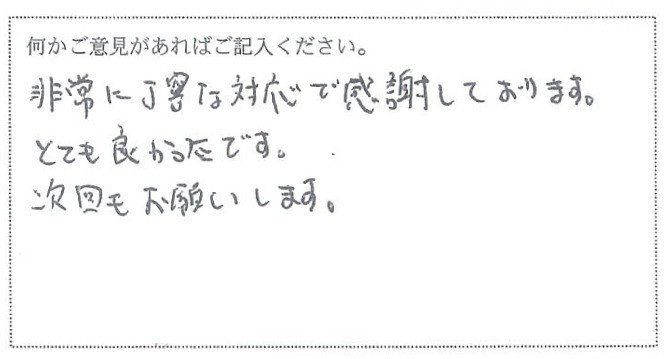 何かご意見があればご記入ください。
非常に丁寧な対応で感謝しております。
とても良かったです。
次回もお願いします。